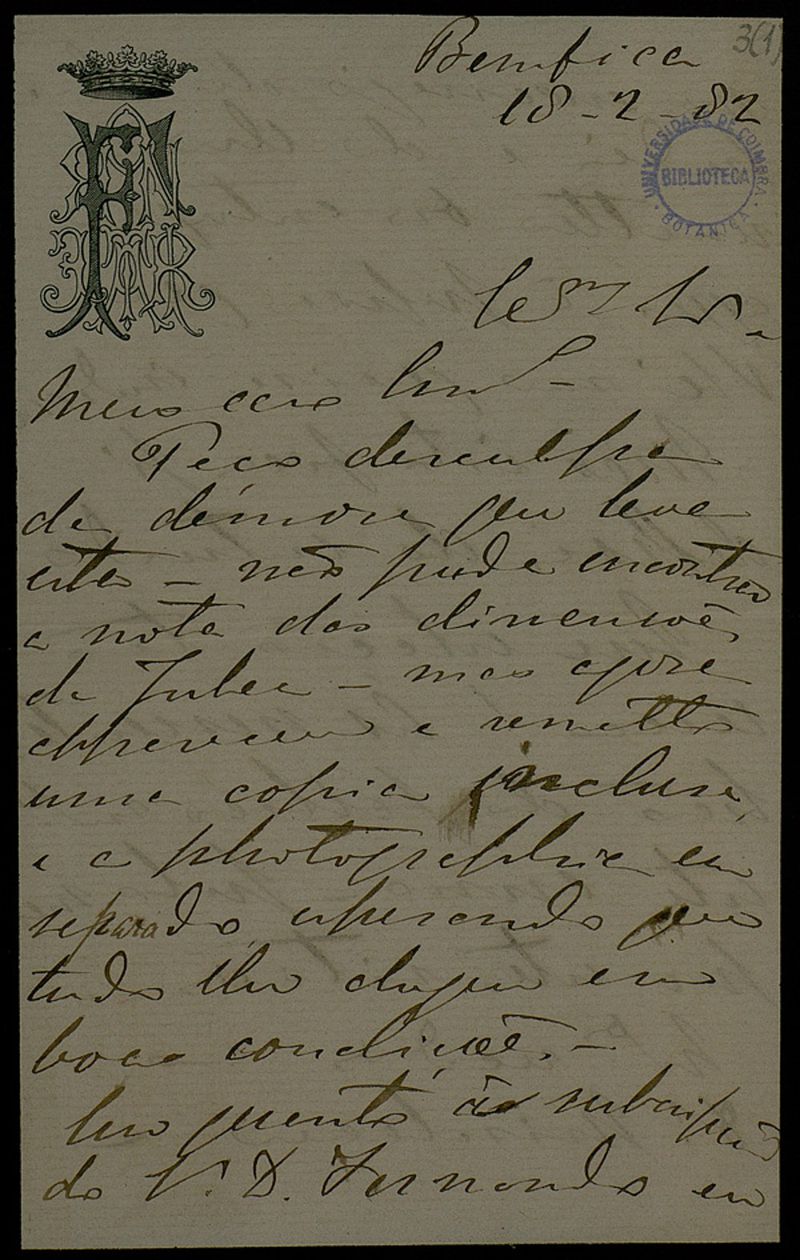 3(1)
Bemfica
18-2-82
UNIVERSIDADE DE COIMBRA
BIBLIOTECA
BOTANICA
Meu caro
Peço desculpa
da démora que leva
esta – não pude encontrar
a nota das dimensões
da Jubea – mas agora
appareceu e remetto
uma copia inclusa,
e a photographia em
separado, esperando que
tudo lhe chegue em
boas condições. –
Em quanto ás subscripção
do S. D. Fernando eu